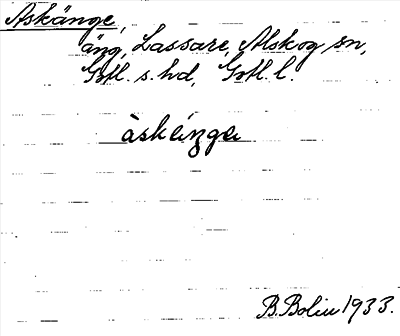 Askänge,
äng, Lassare, Alskog sn,
Gotl. s. hd, Gotl. l.
àskä́nga
B. Bolin 1933.